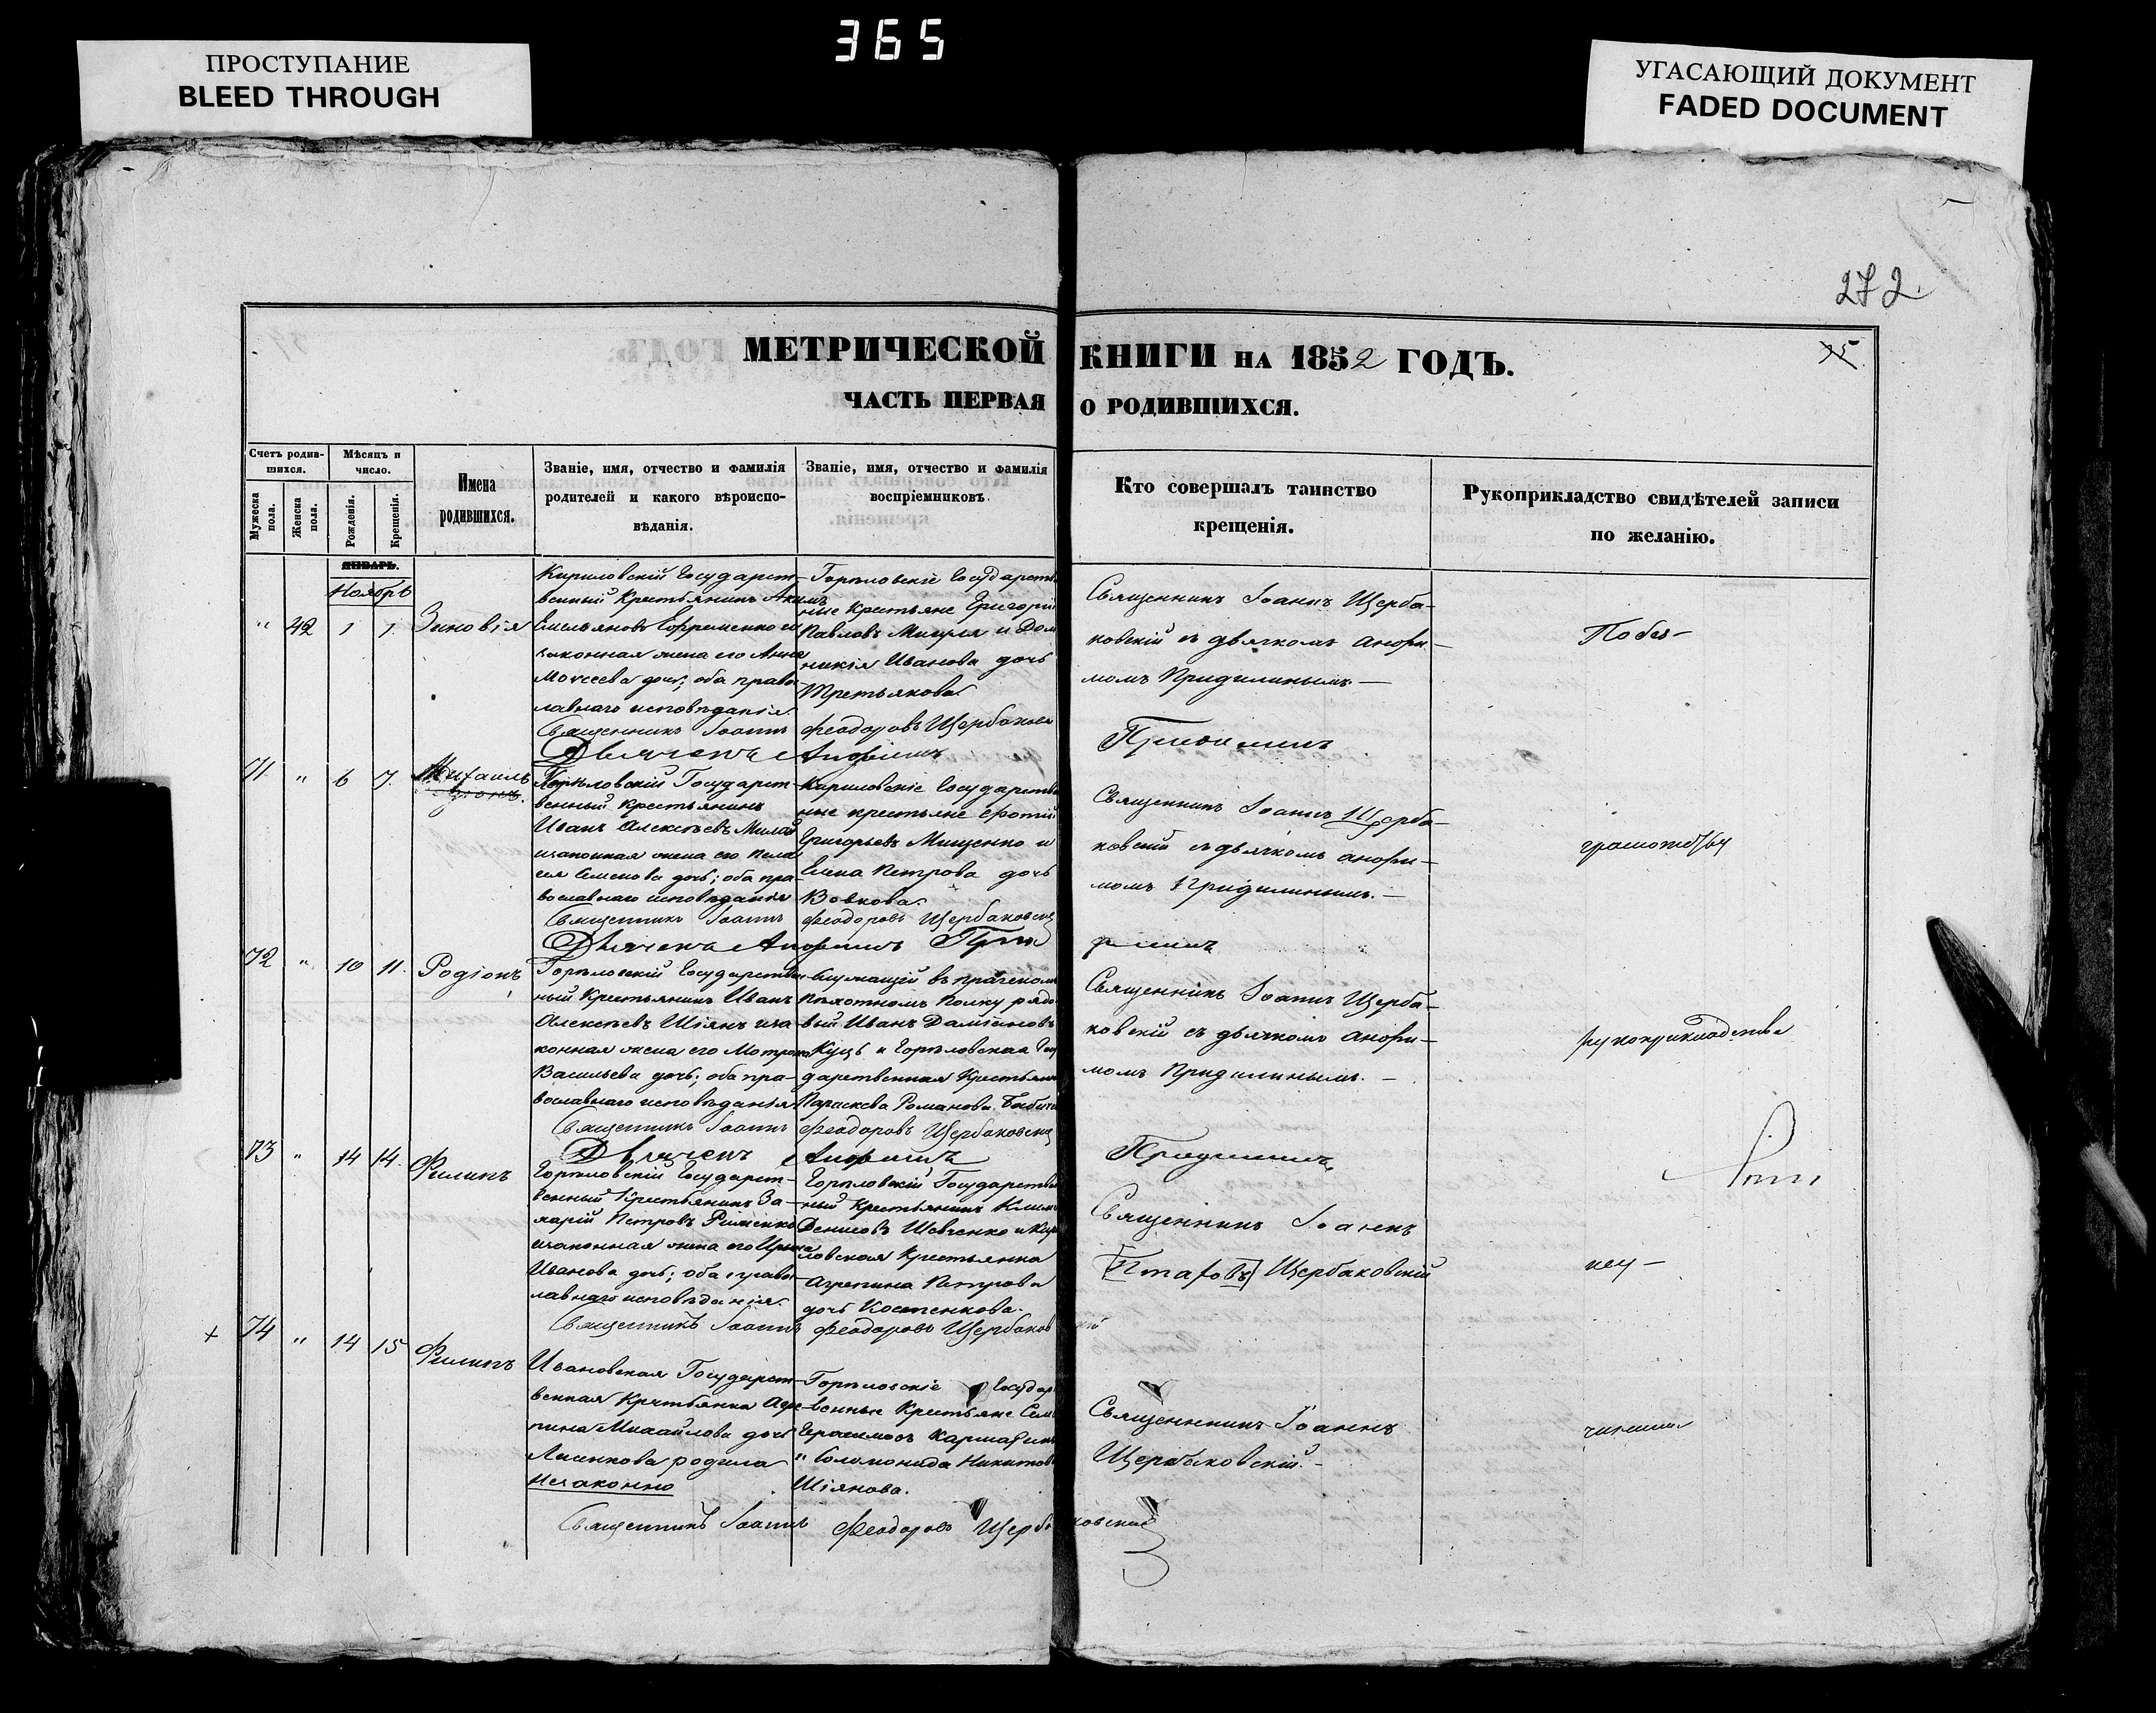 365
ПРОСТУПАНИЕ
BLEED THROUGH
УГАСАЮЩИЙ ДОКУМЕНТ
FADED DOCUMENT
272.
МЕТРИЧЕСКОЙ КНИГИ НА 1852 ГОДЪ.
ЧАСТЬ ПЕРВАЯ О РОДИВШИХСЯ.
Счетъ родив-
шихся.
Мужеска
пола.
Женска
пола.
Мѣсяцъ и
число.
Рожденія.
Крещенія.
Имена
родившихся.
Званіе, имя, отчество и фамилія
родителей и какого вѣроиспо-
вѣданія.
Званіе, имя, отчество и фамилія
воспріемниковъ.
Кто совершалъ таинство
крещенія.
Рукоприкладство свидѣтелей записи
по желанію.
ЯНВАРЬ.
Ноябрь
" 42 1 1. Зиновія
Кириловскій Государст-
венный Крестьянинъ Акимъ
Емельяновъ Ефременко и
законная жена его Анна
Моѵсеева дочь; оба право-
лавнаго исповѣданія.
Горѣловскіе Государств
ные Крестьяне Григорій
Павловъ Мигуля и Дом
никія Иванова дочь
Третьякова
Священникъ Іоаннъ Щерба-
ковскій съ дьячкомъ Анфи-
момъ Придилинымъ.—
Священникъ Іоаннъ Феодоровъ Щербаковс
Дьячекъ Анфимъ
71. " 6 7. Михаилъ
Горѣловскій Государст-
венный крестьянинъ
Иванъ Алексѣевъ
изаконная жена его Пела
гея Семенова дочь; оба пра-
вославнаго исповѣданія
Кириловскіе Государстве
ные крестьяне Фотій
Григорьевъ Мищенко и
Елена Петрова дочь
Вовкова.
Священникъ Іоаннъ Щерба-
ковскій съ дьячкомъ Анфи-
момъ Придилинымъ.—
Священникъ Іоаннъ Феодоровъ Щербаковскій
Дьячекъ Анфимъ
72 " 10 11. Родіонъ
Горѣловскій Государствен-
ный Крестьянинъ Иванъ
Алексѣевъ Шіянъ иза
конная жена его Мотрона
Васильева дочь; оба пра-
вославнаго исповѣданія
Служащій въ пражскомъ
Пѣхотномъ Полку рядо
вый Иванъ Даміановъ
Куць и Горѣловская Госу
дарственная Крестьян
Параскева Романова
Священникъ Іоаннъ Щерба-
ковскій съ дьячкомъ Анфи-
момъ Придилинымъ.—
рукоприкладства
Священникъ Іоаннъ Феодоровъ Щербаковскій
Дьячекъ Анфимъ
73 " 14 14. Филипъ
Горѣловскій Государст-
венный Крестьянинъ За-
харій Петровъ
изаконная жена его Ирина
Иванова дочь; оба право-
лавнаго исповѣданія.
Горѣловскій Государствен
ный Крестьянинъ Клим
Денисовъ Шевченко и Кири
ловская Крестьянка
Агрепина Петрова
дочь Костенкова.
Священникъ Іоаннъ
Щербаковскій
Священникъ Іоаннъ Феодоровъ Щербаков
+ 74 " 14 15 Филипъ
Ивановская Государст-
венная Крестьянка Агре-
пина Михайлова дочь
Лисенкова родила
Незаконно
Горѣловскіе Государ
венные Крестьяне Сем
Герасимовъ
и Соломонида Никитов
Шіянова.
Священникъ Іоаннъ
Щербаковскій.—
Священникъ Іоаннъ Феодоровъ Щербаковскій